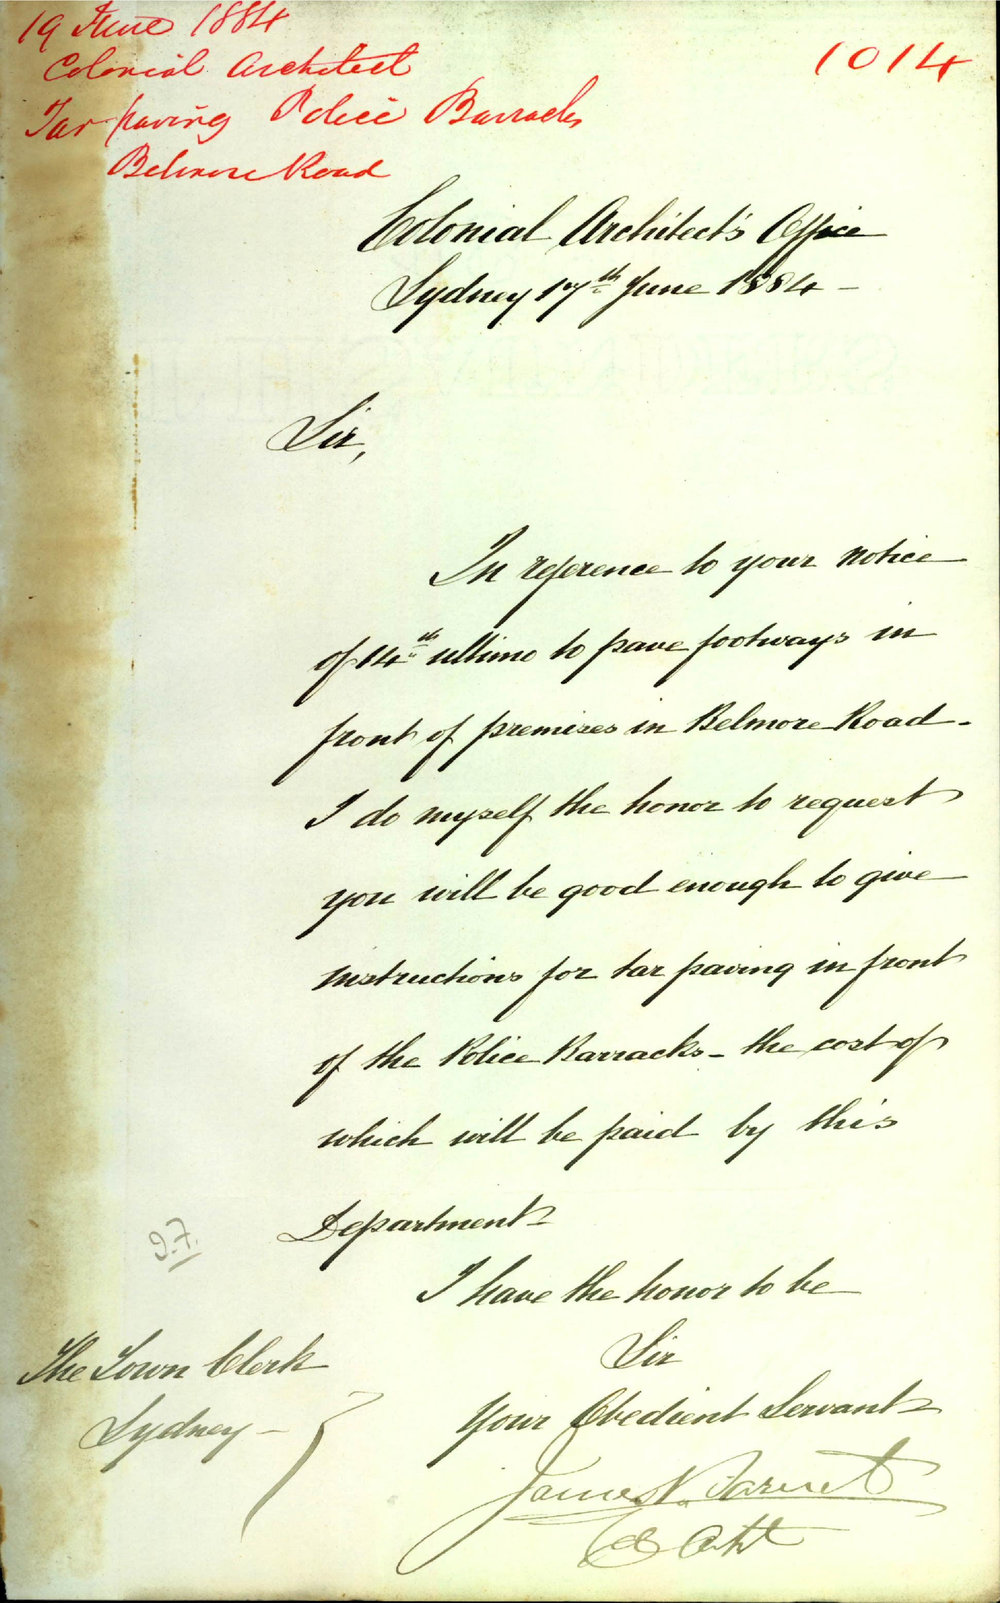 19 June 1884
Colonial Architect
Tar paving Police Barracks
Belmore Road
1014
Colonial Architect's Office
Sydney 17th June 1884 -
Sir,
In reference to your notice
of 14th ultimo to pave footways in
front of premises in Belmore Road -
I do myself the honor to request
you will be good enough to give
instructions for tar paving in front
of the Police Barracks - the cost of
which will be paid by this
Department
I have the honor to be
Sir
Your Obedient Servant
The Town Clerk
Sydney -
James Barnet
Col Archt